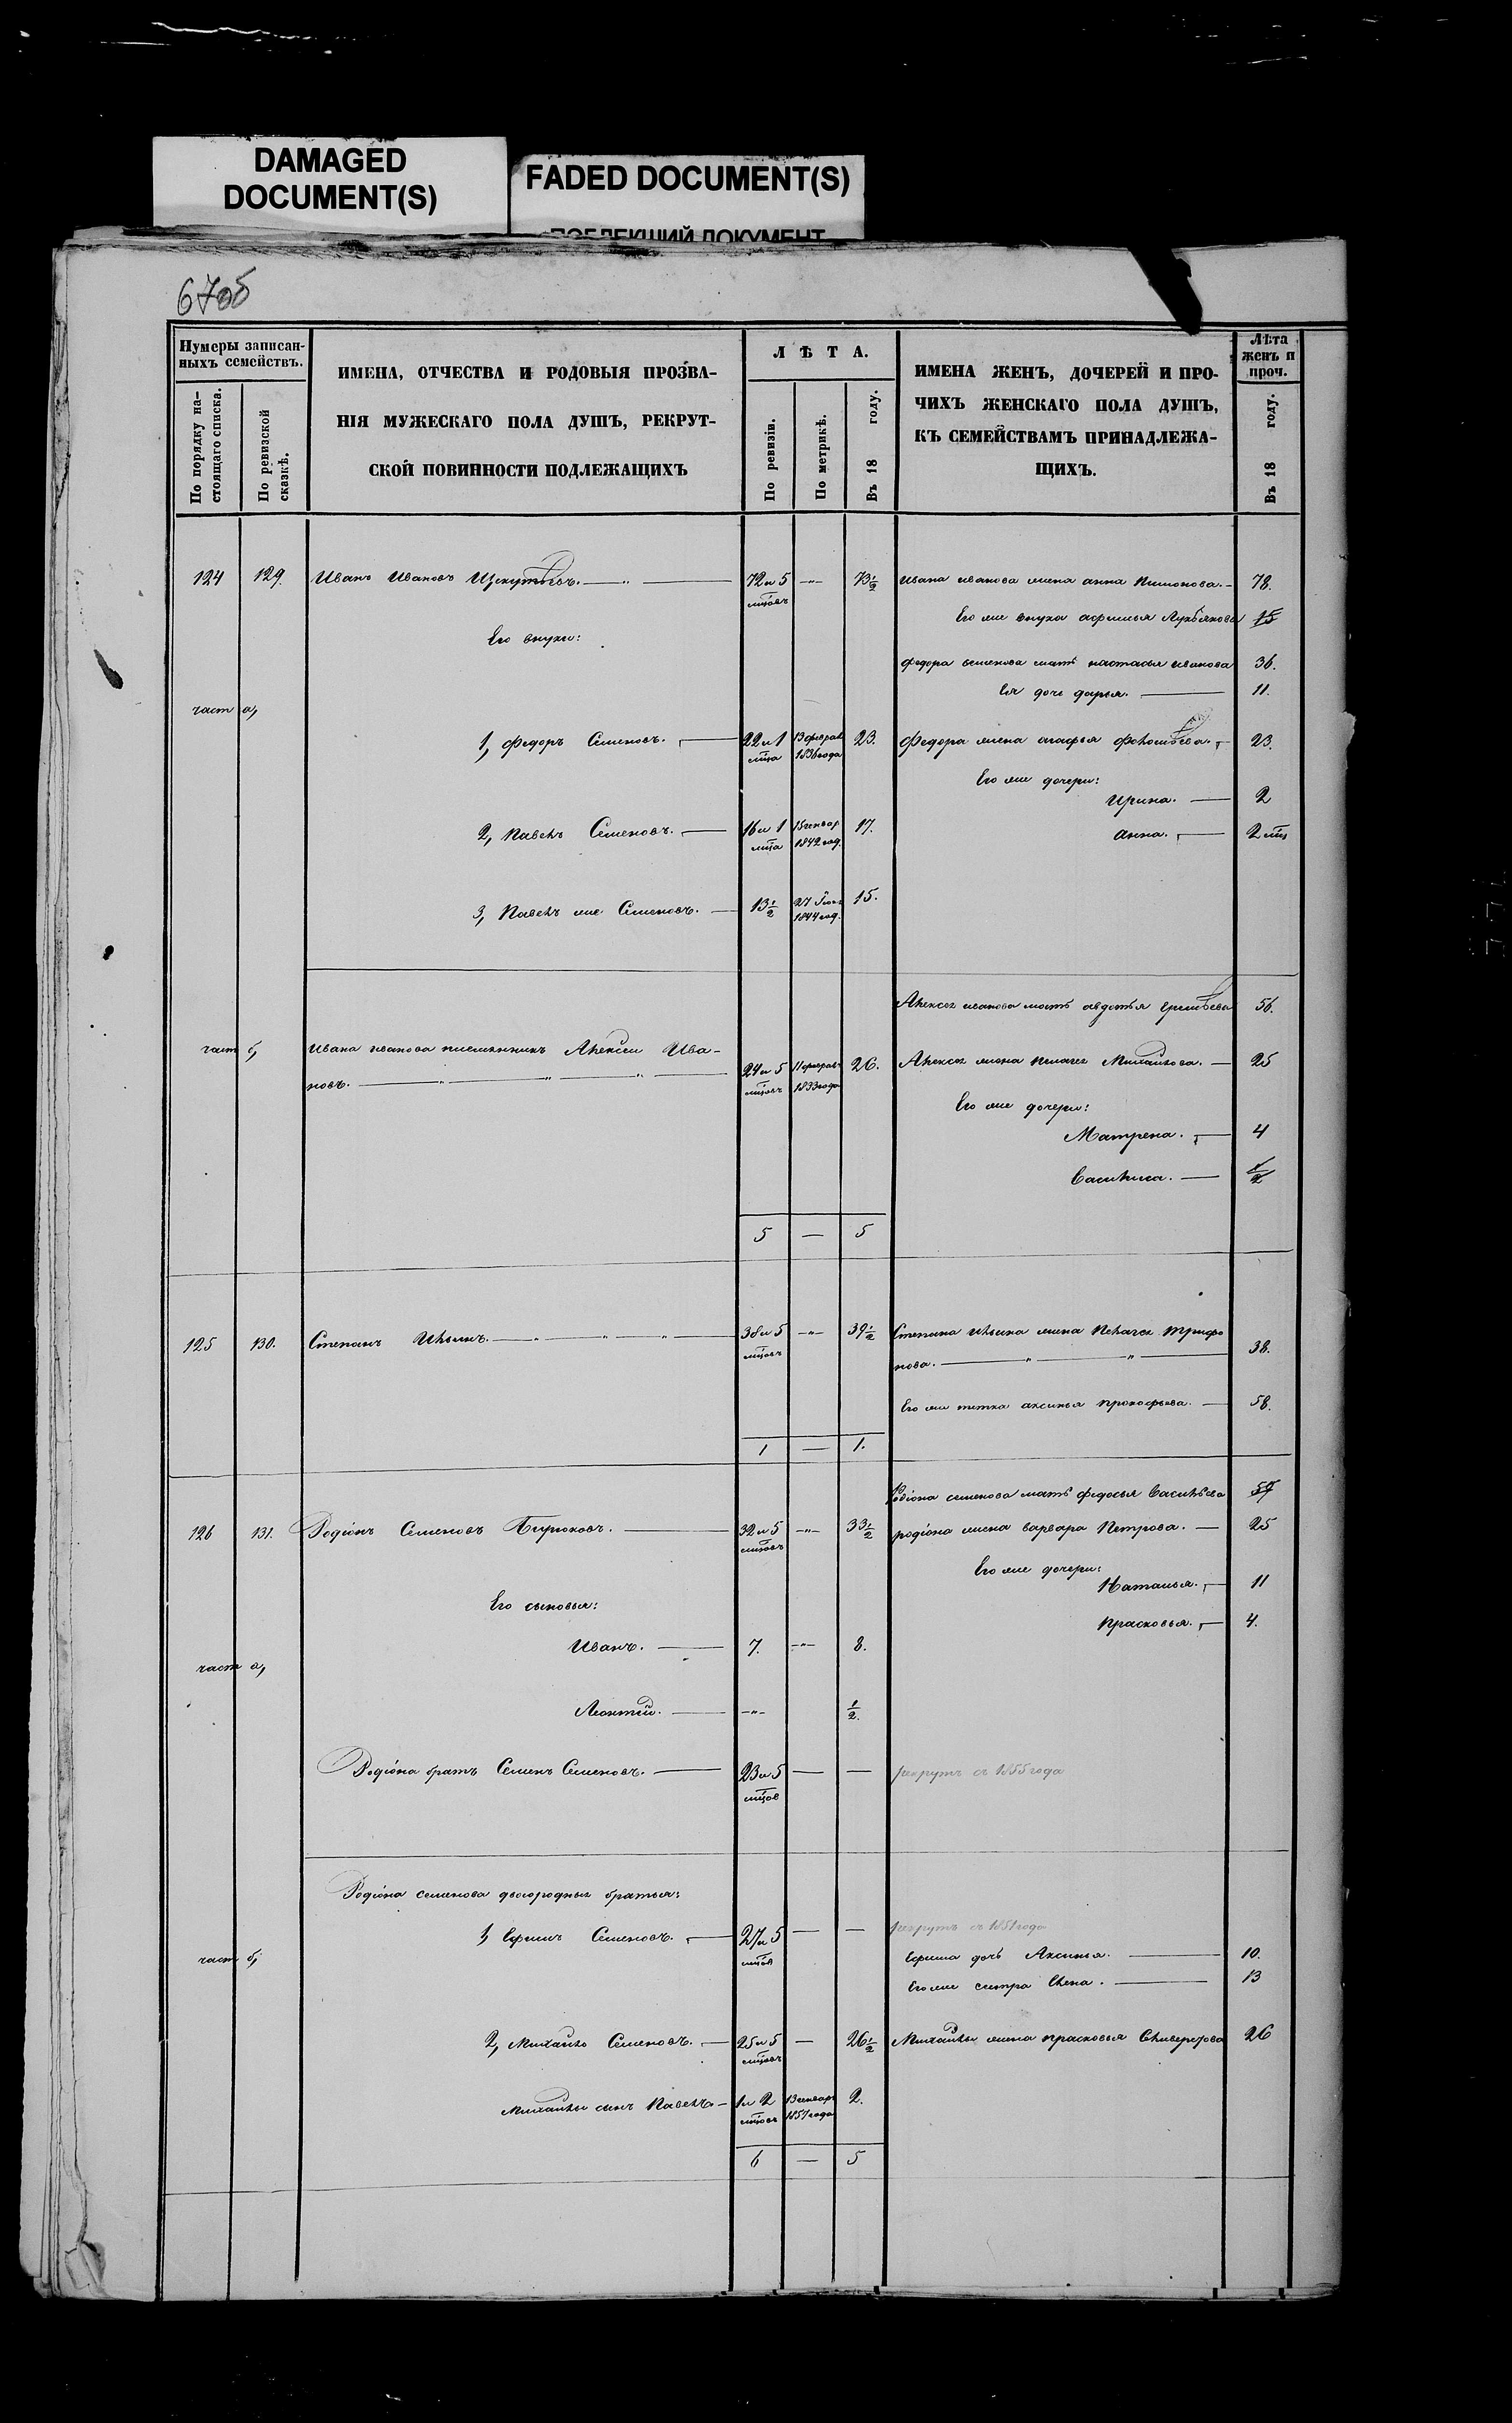 DAMAGED
DOCUMENT(S)
FADED DOCUMENT(S)
ПОБЛЕКШИЙ ДОКУМЕНТ
67об
Нумеры записан-
ныхъ семействъ.
По порядку на-
стоящаго списка.
По ревизской
сказкѣ.
ИМЕНА, ОТЧЕСТВА И РОДОВЫЯ ПРОЗВА-
НІЯ МУЖЕСКАГО ПОЛА ДУШЪ, РЕКРУТ-
СКОЙ ПОВИННОСТИ ПОДЛЕЖАЩИХЪ
ЛѢТА.
По ревизіи.
По метрикѣ.
Въ 18 году.
ИМЕНА ЖЕНЪ, ДОЧЕРЕЙ И ПРО-
ЧИХЪ ЖЕНСКАГО ПОЛА ДУШЪ,
КЪ СЕМЕЙСТВАМЪ ПРИНАДЛЕЖА-
ЩИХЪ.
Лѣта
женъ и
проч.
Въ 18 году.
124 129. Иванъ Ивановъ — " — 72 и 5 мцовъ —"— 73 1/2 Ивана иванова жена анна — 78.
Его же внука афимья 15
Его внуки:
Федора семенова мать настасья иванова 36.
Ея дочь дарья. — 11.
част а,
1, Федоръ Семеновъ. — 22 и 1 мца 13 феврал 1836 года 23. Федора жена агафья — 23.
Его же дочери:
Ирина. — 2
2, Павелъ Семеновъ. — 16 и 1 мца 15 генвар 1842 год. 17. анна. — 2 мц
3, Павелъ же Семеновъ. — 13 1/2 27 1844 год. 15.
Алексея иванова мать авдотья 56.
част б,
Ивана иванова племянникъ Алексей Ива-
новъ. — " — " — " — 24 и 5 мцовъ 11 феврал 1833 года 26. Алексея жена пелагея Михайлова. — 25
Его же дочери:
Матрена. — 4
Василиса. — 1/2
5 — 5
125 130. Степанъ Ильинъ. — " — " — " — 38 и 5 мцовъ —"— 39 1/2 Степана ильина жена пелагея трифо
нова. — " — " — 38.
Его же тетка аксинья прокофьева. — 58.
1 — 1.
Родіона семенова мать федосья Васильева 57
126 131. Родіонъ Семеновъ Бирюковъ. — 32 и 5 мцовъ —"— 33 1/2 родіона жена варвара Петрова. — 25
Его же дочери:
Наталья. — 11
Его сыновья:
прасковья. — 4.
Иванъ. — 7. —"— 8.
част а,
Леонтій. — —"— 1/2.
Родіона братъ Семенъ Семеновъ. — 23 и 5 мцов — — рекрутъ съ 1855 года
Родіона семенова двоюродныя братья:
1, Ефимъ Семеновъ. — 27 и 5 мцов — — рекрутъ съ 1851 года
част б,
Ефима дочь Аксинья. — 10.
Его же сестра Елена. — 13
2, Михайло Семеновъ. — 25 и 5 мцовъ — 26 1/2 Михайлы жена прасковья 26
Михайлы сынъ Павелъ — 1 и 2 мцовъ 13 генваря 1857 года 2.
6 — 5